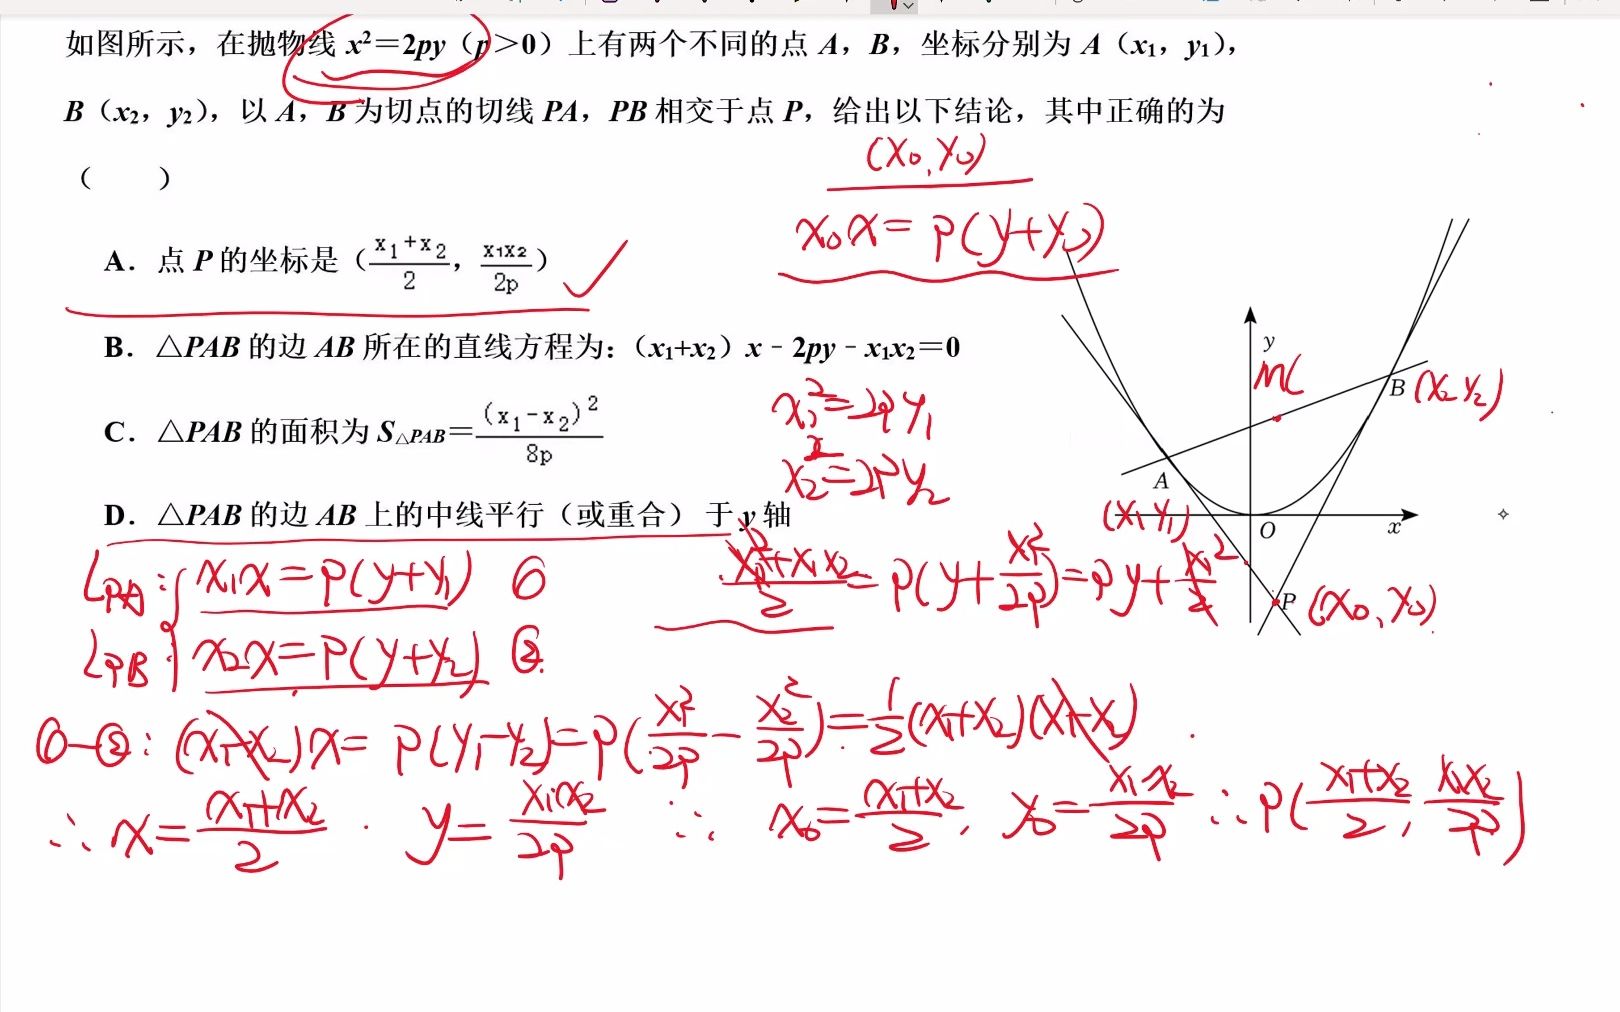 如图所示，在抛物线 x²=2py（p＞0）上有两个不同的点 A，B，坐标分别为 A（x₁，y₁），
B（x₂，y₂），以 A，B 为切点的切线 PA，PB 相交于点 P，给出以下结论，其中正确的为
（　　）
(x₀, y₀)
x₀x = p(y+y₀)
A．点 P 的坐标是（(x₁+x₂)/2，x₁x₂/2p）✓
B．△PAB 的边 AB 所在的直线方程为：（x₁+x₂）x﹣2py﹣x₁x₂=0
C．△PAB 的面积为 S△PAB=(x₁-x₂)²/8p
D．△PAB 的边 AB 上的中线平行（或重合）于 y 轴
x₁²=2py₁
x₂²=2py₂
y
M(
B (x₂ y₂)
A
(x₁ y₁)
O
x
P (x₀, y₀)
L_PA: x₁x=p(y+y₁) ①
L_PB: x₂x=p(y+y₂) ②
(x₁²+x₁x₂)/2 = p(y+x₁²/2p)=py+x₁²/2
①-②: (x₁-x₂)x= p(y₁-y₂)=p(x₁²/2p - x₂²/2p)=1/2(x₁+x₂)(x₁-x₂)
∴ x=(x₁+x₂)/2 . y=x₁x₂/2p ∴ x₀=(x₁+x₂)/2, y₀=x₁x₂/2p ∴P((x₁+x₂)/2, x₁x₂/2p)